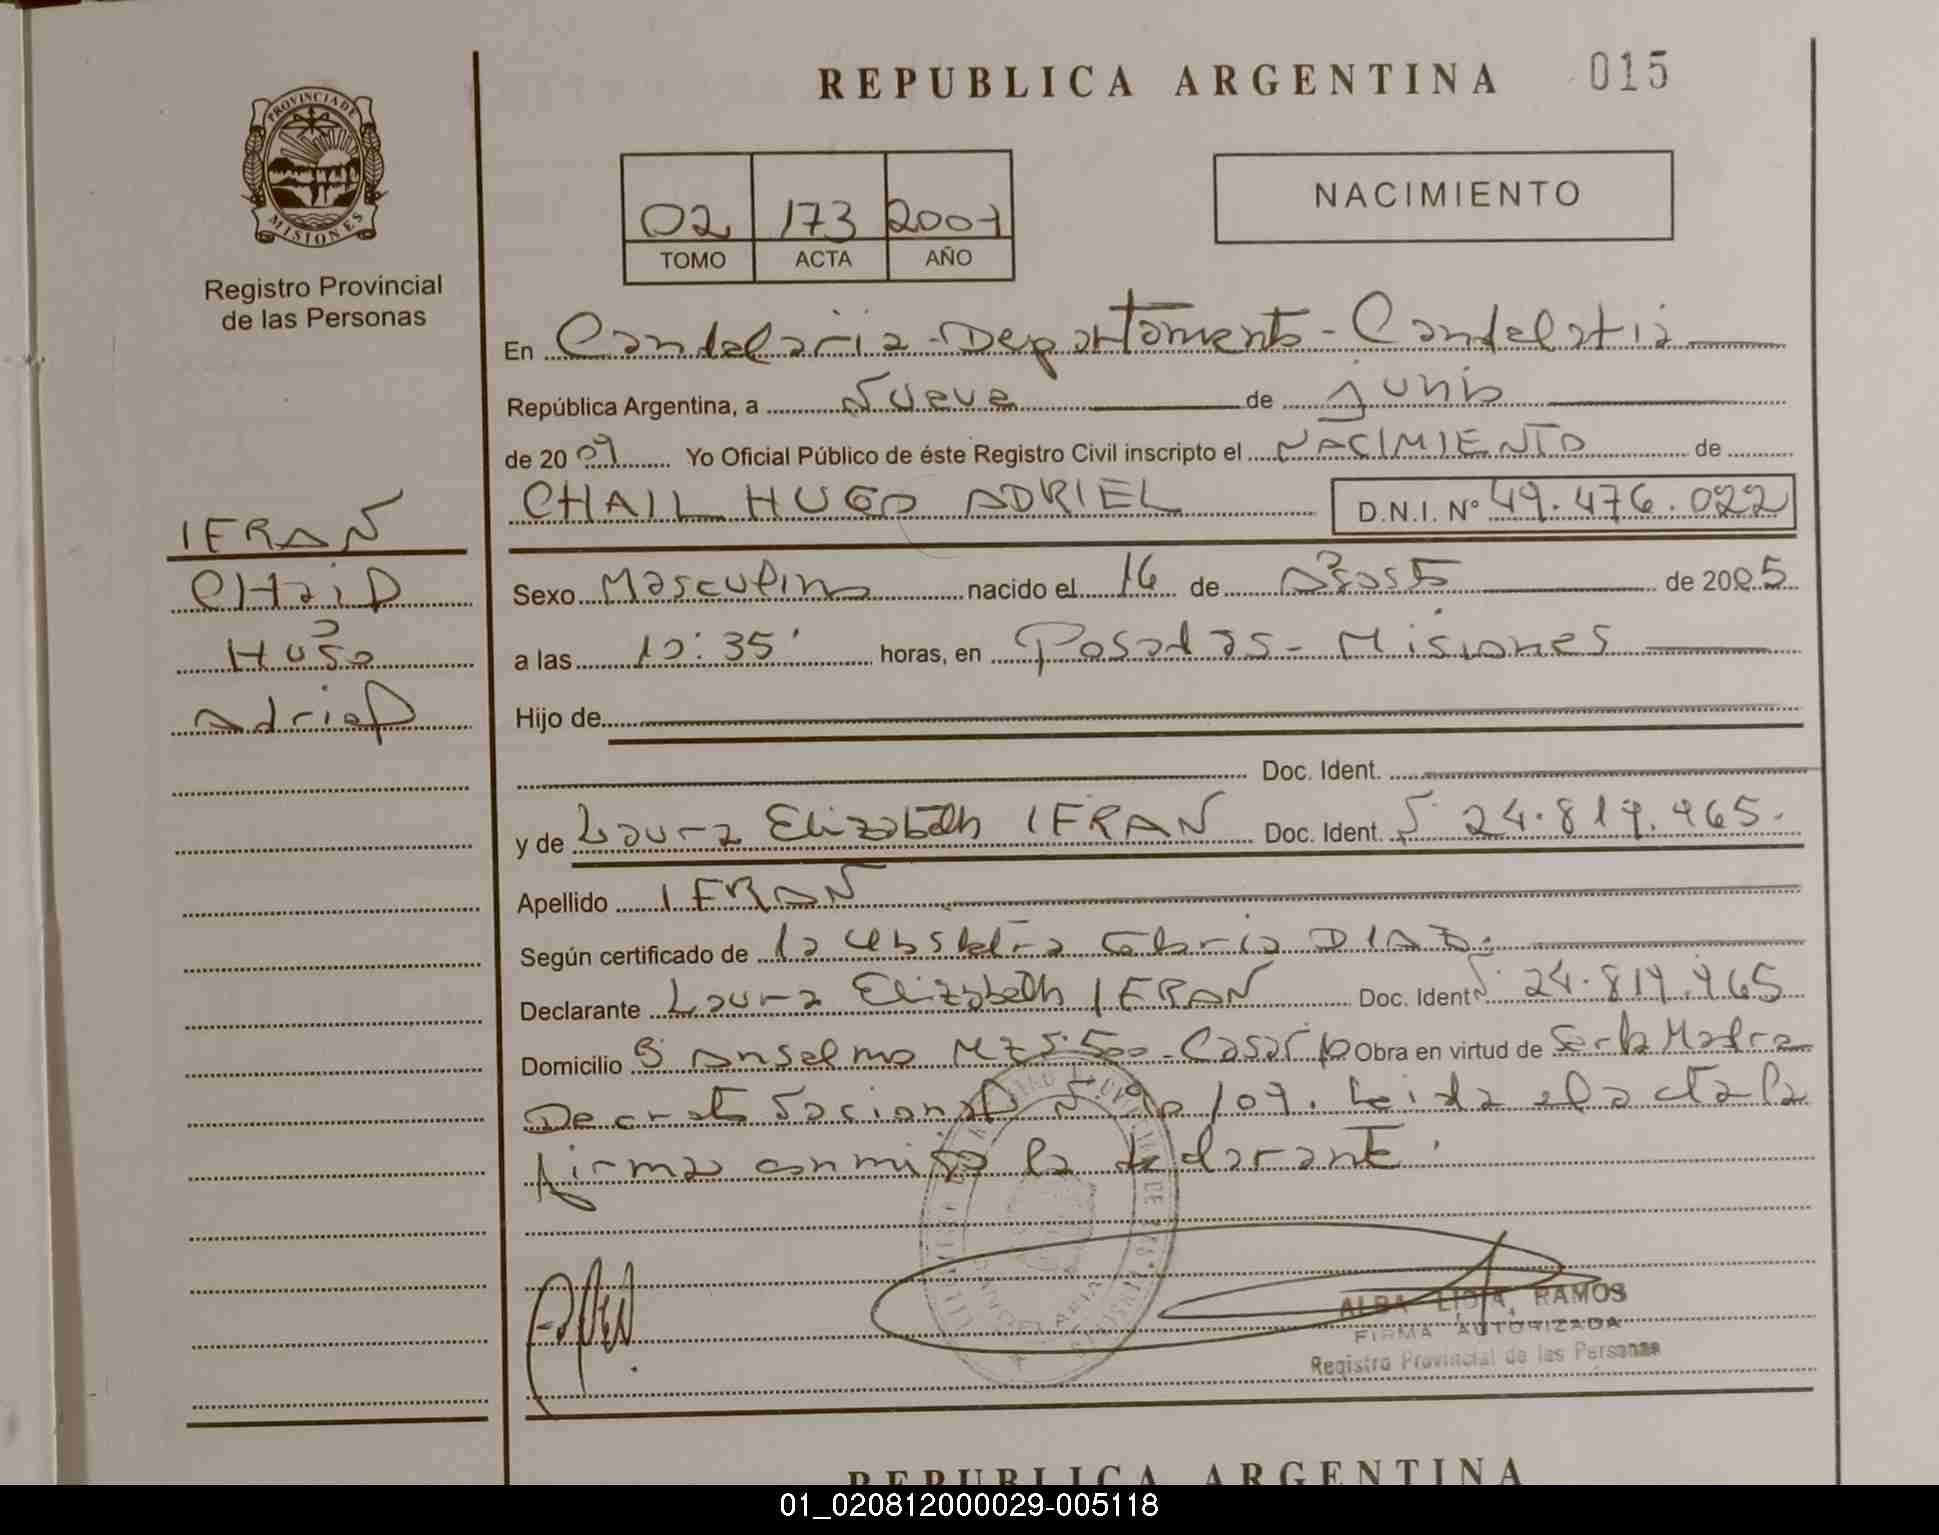 REPUBLICA ARGENTINA 015
PROVINCIA DE
MISIONES
Registro Provincial
de las Personas
02 173 2009
TOMO ACTA AÑO
NACIMIENTO
En Candelaria - Departamento - Candelaria
República Argentina, a Nueve de junio
de 2009 Yo Oficial Público de éste Registro Civil inscripto el NACIMIENTO de
CHAIL HUGO ADRIEL D.N.I. Nº 49.476.022
IFRAN
CHAIL
Hugo
Adriel
Sexo Masculino nacido el 16 de Agosto de 2005
a las 10:35' horas, en Posadas - Misiones
Hijo de
Doc. Ident.
y de Laura Elizabeth IFRAN Doc. Ident. N 24.819.965.
Apellido IFRAN
Según certificado de la obstetra DIAZ.
Declarante Laura Elizabeth IFRAN Doc. Ident N 24.819.965
Domicilio Bº Anselmo Mz S. 500 - Obra en virtud de Ser la Madre
Decreto Nacional /09. Leida el acta la
firma conmigo la declarante.
CANDELARIA
ALBA LIDIA, RAMOS
FIRMA AUTORIZADA
Registro Provincial de las Personas
REPUBLICA ARGENTINA
01_020812000029-005118